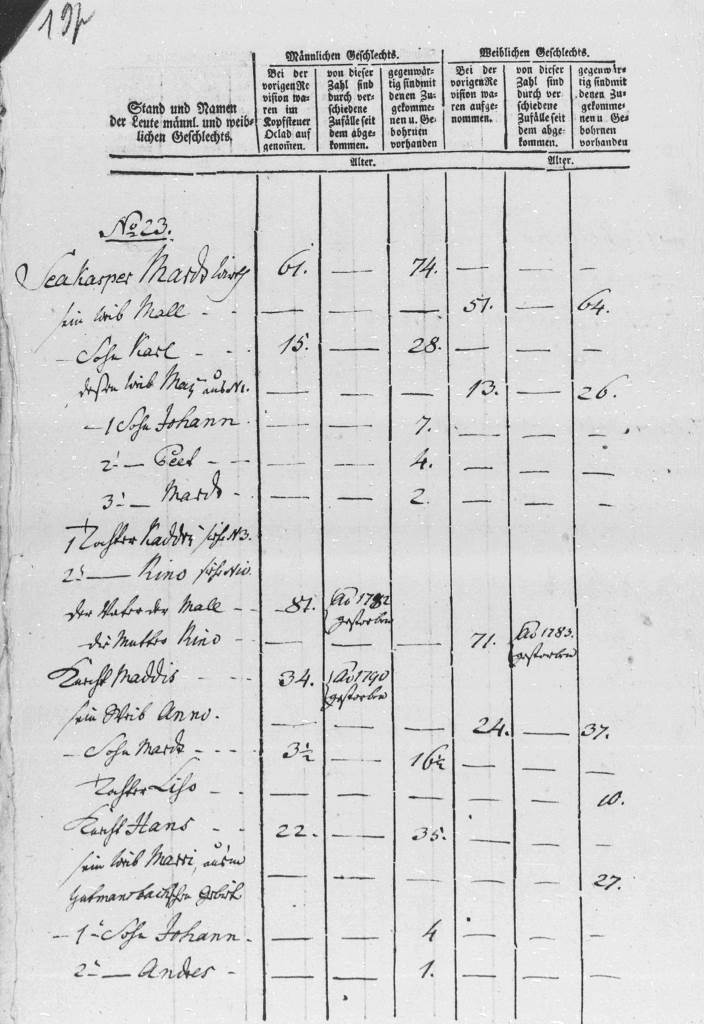 Männlichen Geschlechts. Weiblichen Geschlechts.
Stand und Namen der Leute männl. und weiblichen Geschlechts.
Bei der vorigen Revision waren im Kopfsteuer Oclad aufgenom̃en.
von dieser Zahl sind durch verschiedene Zufälle seit dem abgekommen.
gegenwärtig sind mit denen Zugekommenen u. Gebohrnen vorhanden
Bei der vorigen Revision waren aufgenommen.
von dieser Zahl sind durch verschiedene Zufälle seit dem abgekommen.
gegenwärtig sind mit denen Zugekommenen u. Gebohrnen vorhanden
Alter. Alter.
No 23.
Seakasper Mards 61. — 74. — — —
sein Weib Mall — — — 51. — 64.
Sohn Karl 15. — 28. — — —
dessen Weib — — — 13. — 26.
1 Sohn Johann — — 7. — — —
2 — Peet — — 4. — — —
3 — Mards — — 2. — — —
1 Tochter Kaddri
2 — Kino
der Vater der Mall 81. Ao 1782 gestorben
die Mutter Kino — — — 71. Ao 1783. gestorben
Knecht Maddis 34. Ao 1790 gestorben
sein Weib Anno. — — — 24. — 37.
Sohn Mards 3½ — 16½ — — —
Tochter Liso — — — — — 10.
Knecht Hans 22. — 35. — — —
sein Weib Marri,
Gebiet — — — — — 27.
1 Sohn Johann — — 4 — — —
2 — Andres — — 1. — — —